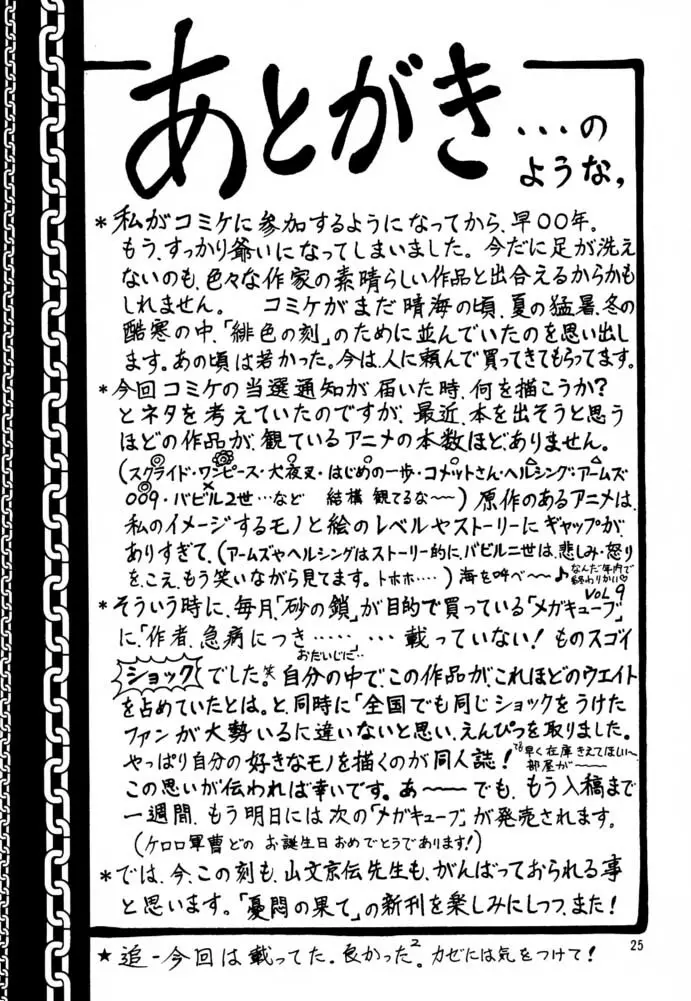 あとがき
…の
ような,
*私がコミケに参加するようになってから、早〇〇年。
もう、すっかり爺いになってしまいました。今だに足が洗え
ないのも、色々な作家の素晴らしい作品と出合えるからかも
しれません。 コミケがまだ晴海の頃、夏の猛暑、冬の
酷寒の中、「緋色の刻」のために並んでいたのを思い出し
ます。あの頃は若かった。今は、人に頼んで買ってきてもらってます。
*今回コミケの当選通知が届いた時、何を描こうか?
とネタを考えていたのですが、最近、本を出そうと思う
ほどの作品が、観ているアニメの本数ほど、ありません。
(スクライド・ワンピース・犬夜叉・はじめの一歩・コメットさん・ヘルシング・アームズ
009・バビル2世…など 結構 観てるな〜〜)原作のあるアニメは、
私のイメージするモノと絵のレベルやストーリーにギャップが
ありすぎて、(アームズやヘルシングはストーリー的に、バビル二世は、悲しみ・怒り
を、こえ、もう笑いながら見てます。トホホ‥‥)海を呼べ〜〜♪
なんだ年内で
終わりかい♡
*そういう時に、毎月「砂の鎖」が目的で買っている「メガキューブ」
VOL9
に、「作者、急病につき……」…載っていない!ものスゴイ
おだいじに‥
ショックでした。笑 自分の中で、この作品が、これほどのウエイト
を占めていたとは。と、同時に「全国でも同じショックをうけた
ファンが大勢いるに違いないと思い、えんぴつを取りました。
やっぱり自分の好きなモノを描くのが同人誌!
でも早く在庫きえてほしい〜
部屋が〜〜
この思いが伝われば幸いです。あ〜〜でも、もう入稿まで
一週間、もう明日には次の「メガキューブ」が発売されます。
(ケロロ軍曹どの お誕生日おめでとうであります!)
*では、今、この刻も、山文京伝先生も、がんばっておられる事
と思います。「憂悶の果て」の新刊を楽しみにしつつ、また!
25
★追-今回は載ってた。良かった2。カゼには気をつけて!